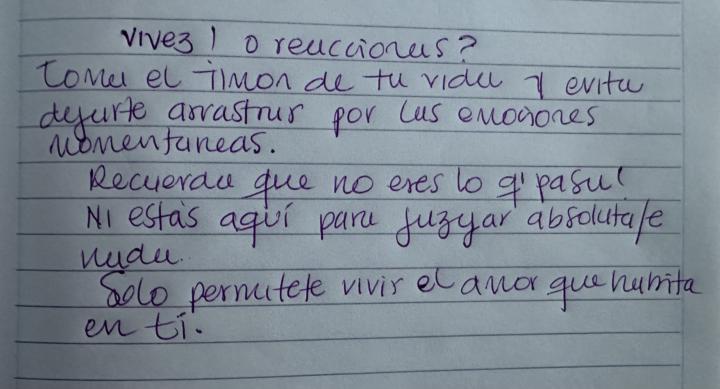 Vives! o reaccionas?
Toma el timon de tu vida y evita
dejarte arrastrar por las emociones
momentaneas.
Recuerda que no eres lo q' pasa!
Ni estás aquí para juzgar absoluta/e
nada.
Solo permitete vivir el amor que habita
en tí.